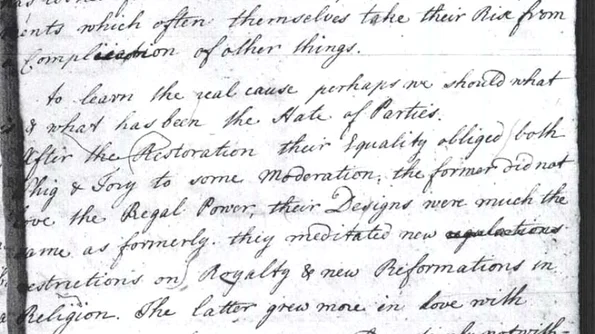 ments which often themselves take their Rise from
a Complication of other things.
to learn the real cause perhaps we should what
is & what has been the State of Parties.
After the Restoration their Equality obliged both
Whig & Tory to some Moderation; the former did not
love the Regal Power, their Designs were much the
same as formerly. they meditated new regulations
restrictions on Royalty & new Reformations in
Religion. The latter grew more in love with